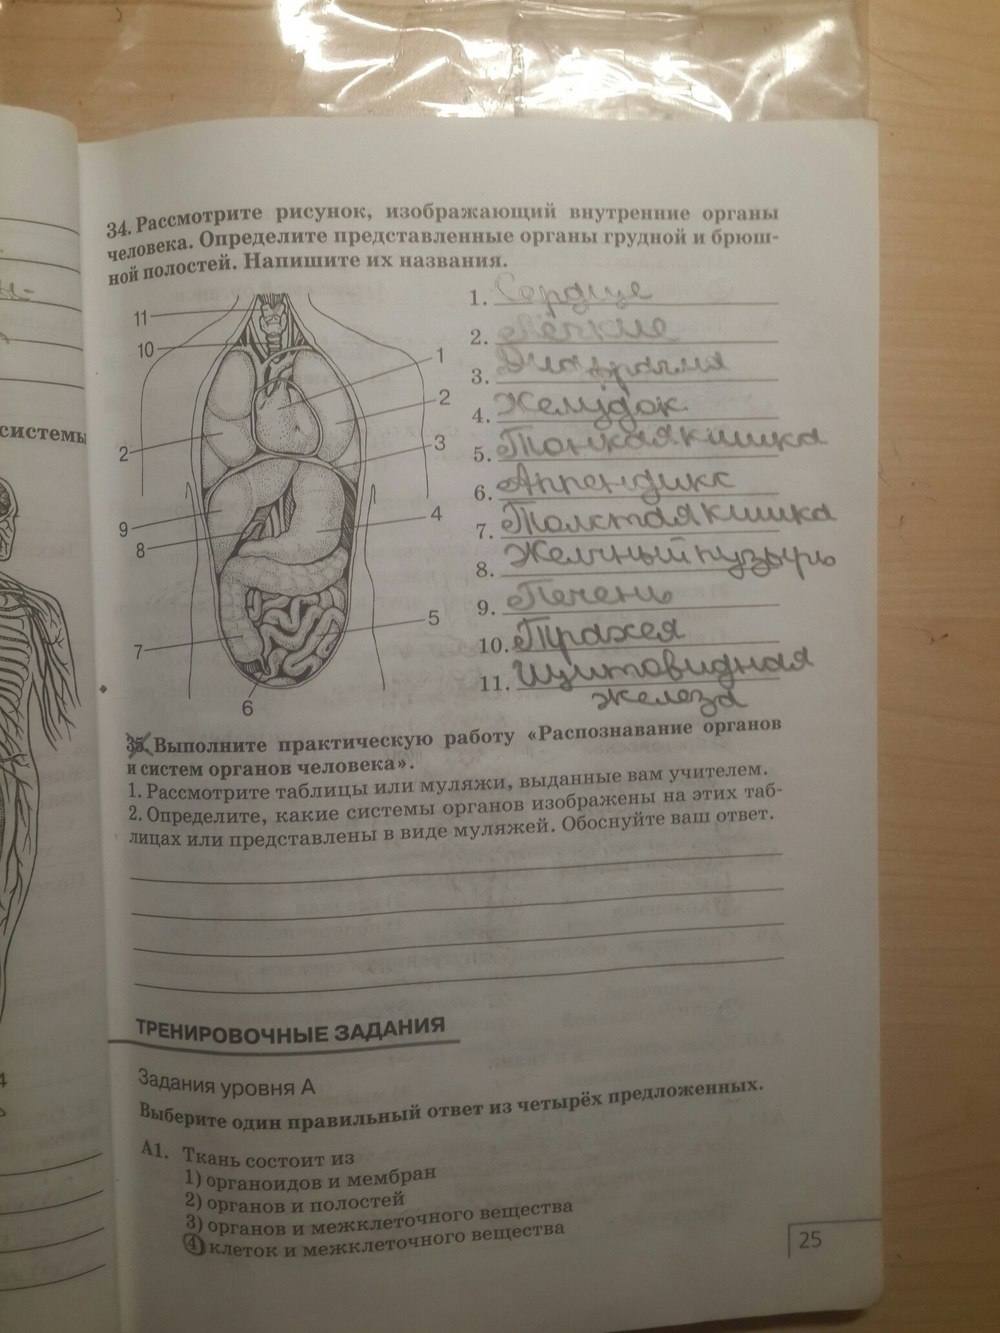 34. Рассмотрите рисунок, изображающий внутренние органы
человека. Определите представленные органы грудной и брюш-
ной полостей. Напишите их названия.
11
10
1
2
2
3
9
8
4
5
7
6
1. Сердце
2. Лёгкие
3. Диафрагма
4. Желудок
5. Тонкая кишка
6. Аппендикс
7. Толстая кишка
8. Желчный пузырь
9. Печень
10. Трахея
11. Щитовидная
железа
системы
35. Выполните практическую работу «Распознавание органов
и систем органов человека».
1. Рассмотрите таблицы или муляжи, выданные вам учителем.
2. Определите, какие системы органов изображены на этих таб-
лицах или представлены в виде муляжей. Обоснуйте ваш ответ.
ТРЕНИРОВОЧНЫЕ ЗАДАНИЯ
Задания уровня А
Выберите один правильный ответ из четырёх предложенных.
А1. Ткань состоит из
1) органоидов и мембран
2) органов и полостей
3) органов и межклеточного вещества
4) клеток и межклеточного вещества
25